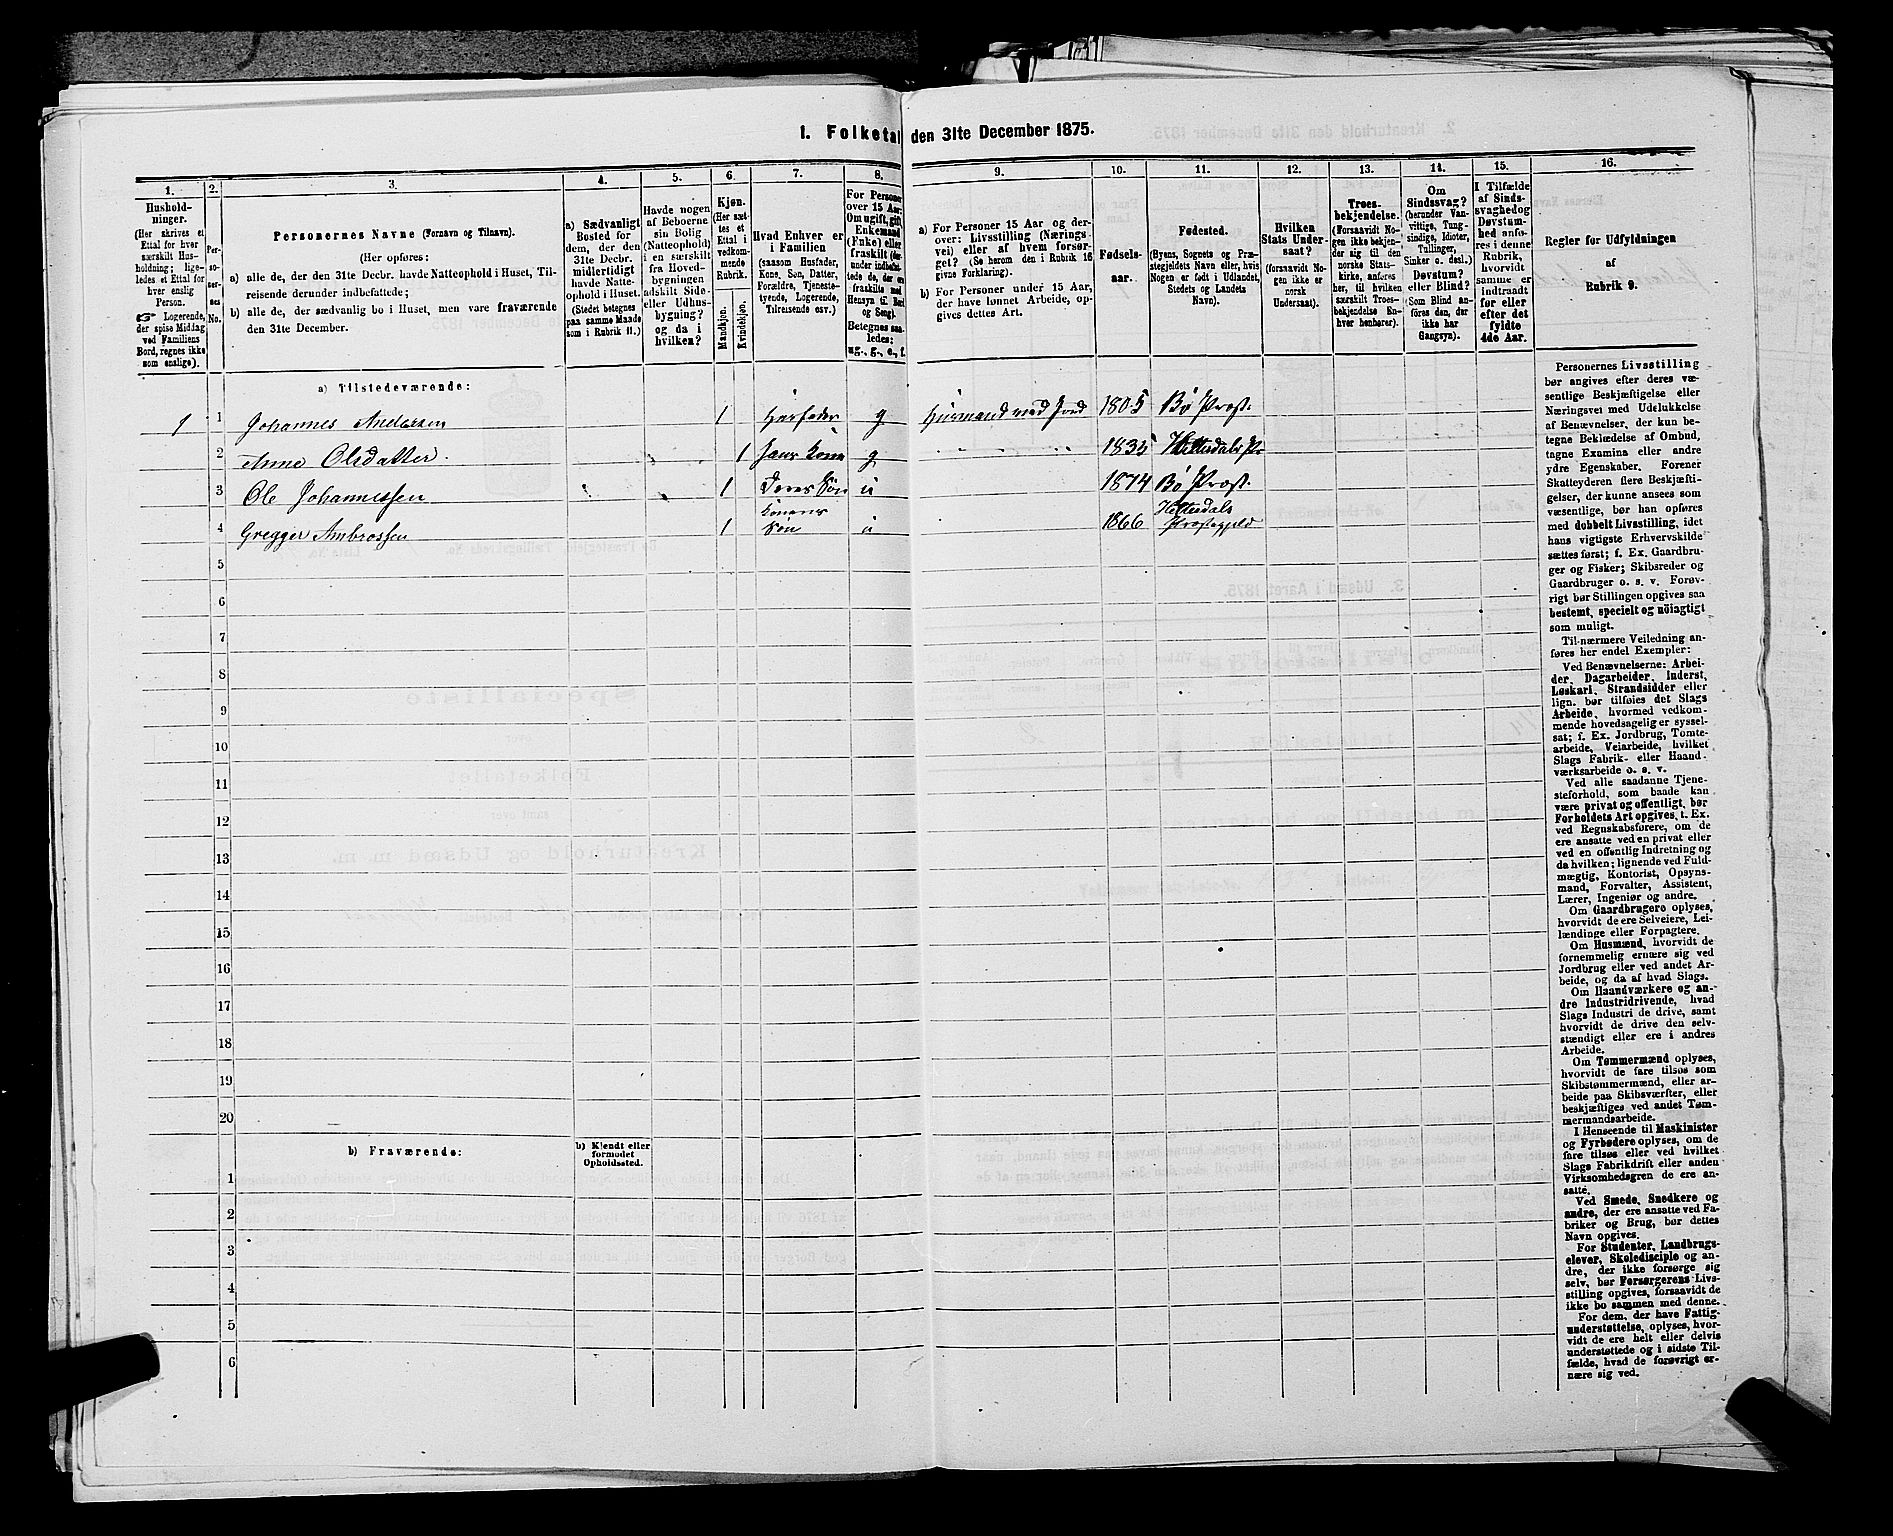 1. Folketal den 31te December 1875.
1.
2.
3.
4.
5.
6.
7.
8.
9.
10.
11.
12.
13.
14.
15.
16.
Hushold-
ninger.
(Her skrives et
Ettal for hver
særskilt Hus-
holdning; lige-
ledes et Ettal for
hver enslig
Person.
☞ Logerende,
der spise Middag
ved Familiens
Bord, regnes ikke
som enslige).
Per-
so-
ner-
nes
No.
Personernes Navne (Fornavn og Tilnavn).
(Her opføres:
a) alle de, der den 31te Decbr. havde Natteophold i Huset, Til-
reisende derunder indbefattede;
b) alle de, der sædvanlig bo i Huset, men vare fraværende
den 31te December.
a) Sædvanligt
Bosted for
dem, der den
31te Decbr.
midlertidigt
havde Natte-
ophold i Huset.
(Stedet betegnes
paa samme Maade
som i Rubrik 11.)
Havde nogen
af Beboerne
sin Bolig
(Natteophold)
i en særskilt
fra Hoved-
bygningen
adskilt Side-
eller Udhus-
bygning?
og da i
hvilken?
Kjøn.
(Her sæt-
tes et
Ettal i
vedkom-
mende
Rubrik.
Mandkjøn.
Kvindekjøn.
Hvad Enhver er
i Familien
(saasom Husfader,
Kone, Søn, Datter,
Forældre, Tjeneste-
tyende, Logerende,
Tilreisende osv.)
For Personer
over 15 Aar:
Om ugift, gift,
Enkemand
(Enke) eller
fraskilt
Betegnes saa-
ledes:
ug., g., e., f.
a) For Personer 15 Aar og der-
over: Livsstilling (Nærings-
vei) eller af hvem forsør-
get? (Se herom den i Rubrik 16
givne Forklaring).
b) For Personer under 15 Aar,
der have lønnet Arbeide, op-
gives dettes Art.
Fødsels-
aar.
Fødested.
(Byens, Sognets og Præ-
stegjeldets Navn eller, hvis
Nogen er født i Udlandet,
Stedets og Landets
Navn).
Hvilken
Stats Under-
saat?
(forsaavidt No-
gen ikke er
norsk
Undersaat).
Troes-
bekjendelse.
(Forsaavidt No-
gen ikke bekjen-
der sig til den
norske Stats-
kirke, anføres
her, til hvilken
særskilt Troes-
bekjendelse En-
hver henhører).
Om
Sindssvag?
(herunder Van-
vittige, Tung-
sindige, Idioter,
Tullinger,
Sinker o. desl.)
Døvstum?
eller Blind?
(Som Blind an-
føres den, der
ikke har
Gangsyn).
I Tilfælde
af Sinds-
svaghed og
Døvstum-
hed anfø-
res i denne
Rubrik,
hvorvidt
samme er
indtraadt
før eller
efter det
fyldte
4de Aar.
Regler for Udfyldningen
af
Rubrik 9.
a) Tilstedeværende:
1 1 Johannes Andersen 1 Husfader g Husmand med Jord 1805 Bø Prest.
2 Anne Olsdatter 1 hans Kone g 1835 Hitterdals Pr
3 Ole Johannessen 1 Deres Søn u 1874 Bø Prest.
4 Gregger Ambrossen 1 Konens Søn u 1866 Hitterdals Præstegjeld
5
6
7
8
9
10
11
12
13
14
15
16
17
18
19
20
b) Fraværende:
b) Kjendt eller
formodet
Opholdssted.
1
2
3
4
5
6
Personernes Livsstilling
bør angives efter deres væ-
sentlige Beskjæftigelse eller
Næringsvei med Udelukkelse
af Benævnelser, der kun be-
tegne Beklædelse af Ombud,
tagne Examina eller andre
ydre Egenskaber. Forener
Skatteyderen flere Beskjæfti-
gelser, der kunne ansees som
væsentlige, bør han opføres
med dobbelt Livsstilling, idet
hans vigtigste Erhvervskilde
sættes først; f. Ex. Gaardbru-
ger og Fisker; Skibsreder og
Gaardbruger o. s. v. Forøv-
rigt bør Stillingen opgives saa
bestemt, specielt og nöiagtigt
som muligt.
Til nærmere Veiledning an-
føres her endel Exempler:
Ved Benævnelserne: Arbei-
der, Dagarbeider, Inderst,
Løskari, Strandsidder eller
lign. bør tilføies det Slags
Arbeide, hvormed vedkom-
mende hovedsagelig er syssel-
sat; f. Ex. Jordbrug, Tomte-
arbeide, Veiarbeide, hvilket
Slags Fabrik- eller Haand-
værksarbeide o. s. v.
Ved alle saadanne Tjene-
steforhold, som baade kan
være privat og offentligt, bør
Forholdets Art opgives, t. Ex.
ved Regnskabsførere, om de
ere ansatte ved en privat eller
ved en offentlig Indretning og
da hvilken; lignende ved Fuld-
mægtig, Kontorist, Opsyns-
mand, Forvalter, Assistent,
Lærer, Ingeniør og andre.
Om Gaardbrugere oplyses,
hvorvidt de ere Selveiere, Lei-
lændinge eller Forpagtere.
Om Husmænd, hvorvidt de
fornemmelig ernære sig ved
Jordbrug eller ved andet Ar-
beide, og da af hvad Slags.
Om Haandværkere og an-
dre Industridrivende, hvad
Slags Industri de drive, samt
hvorvidt de drive den selv-
stændigt eller ere i andres
Arbeide.
Om Tømmermænd oplyses,
hvorvidt de fare tilsøs som
Skibstømmermænd, eller ar-
beide paa Skibsværfter, eller
beskjæftiges ved andet Tøm-
mermandsarbeide.
I Henseende til Maskinister
og Fyrbødere oplyses, om de
fare tilsøs eller ved hvilket
Slags Fabrikdrift eller anden
Virksomhedsgren de ere an-
satte.
Ved Smede, Snedkere og
andre, der ere ansatte ved Fa-
briker og Brug, bør dettes
Navn opgives.
For Studenter, Landbrugs-
elever, Skoledisciple og an-
dre, der ikke forsørge sig
selv, bør Forsørgerens Livs-
stilling opgives, forsaavidt de
ikke bo sammen med denne.
For dem, der have Fattig-
understøttelse, oplyses, hvor-
vidt de ere helt eller delvis
understøttede og i sidste Til-
fælde, hvad de forøvrigt er-
nære sig ved.